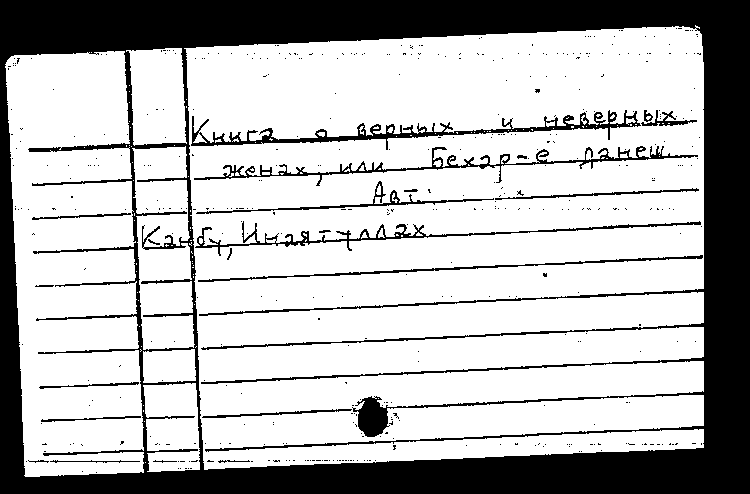 Книга о верных и неверных
женах, или Бехар-е данеш.
Авт.:
Канбу, Инаятуллах